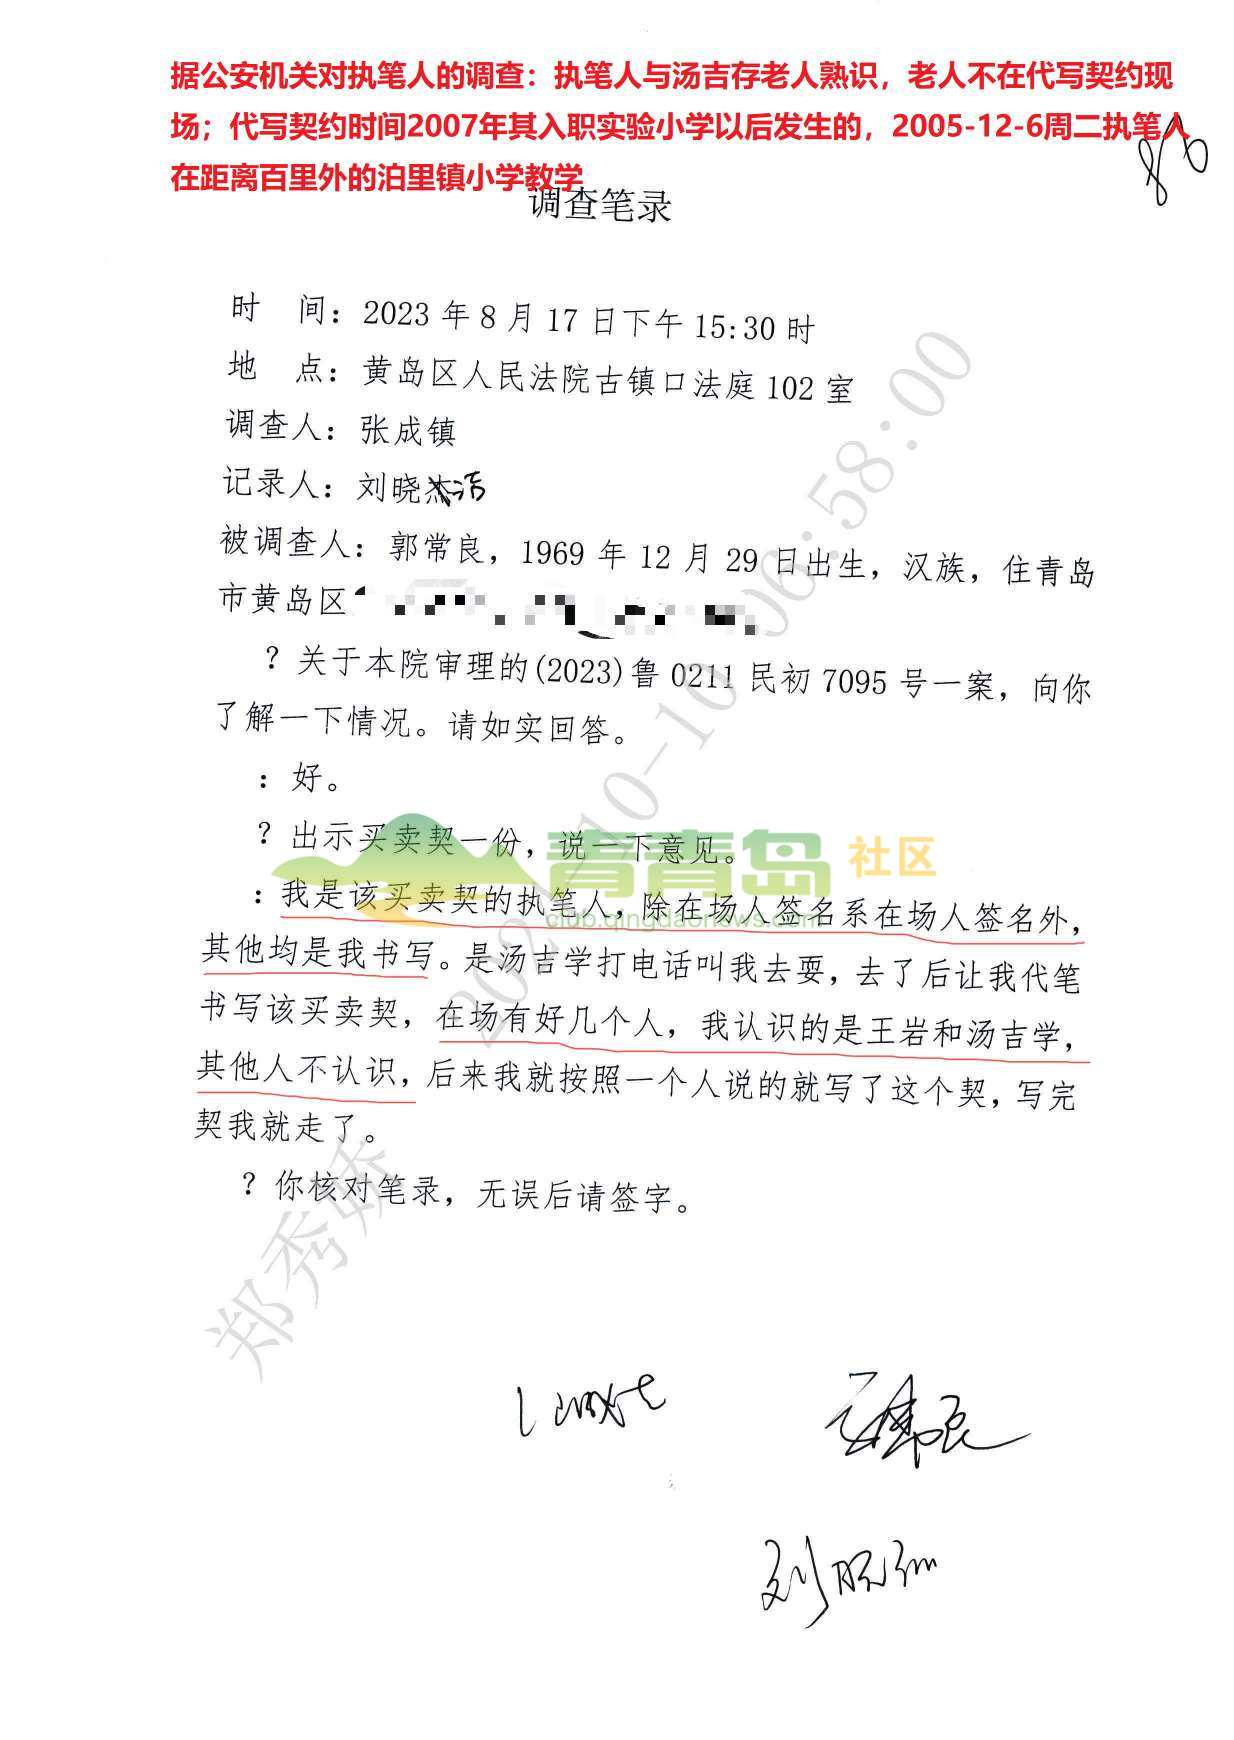 据公安机关对执笔人的调查：执笔人与汤吉存老人熟识，老人不在代写契约现
场；代写契约时间2007年其入职实验小学以后发生的，2005-12-6周二执笔人
在距离百里外的泊里镇小学教学
调查笔录
时　间：2023 年 8 月 17 日下午 15:30 时
地　点：黄岛区人民法院古镇口法庭 102 室
调查人：张成镇
记录人：刘晓杰洁
被调查人：郭常良，1969 年 12 月 29 日出生，汉族，住青岛
市黄岛区
？关于本院审理的(2023)鲁 0211 民初 7095 号一案，向你
了解一下情况。请如实回答。
：好。
？出示买卖契一份，说一下意见。
青青岛 社区
club.qingdaonews.com
：我是该买卖契的执笔人，除在场人签名系在场人签名外，
其他均是我书写。是汤吉学打电话叫我去耍，去了后让我代笔
书写该买卖契，在场有好几个人，我认识的是王岩和汤吉学，
其他人不认识，后来我就按照一个人说的就写了这个契，写完
契我就走了。
？你核对笔录，无误后请签字。
郑秀娇 2024-10-10 06:58:00